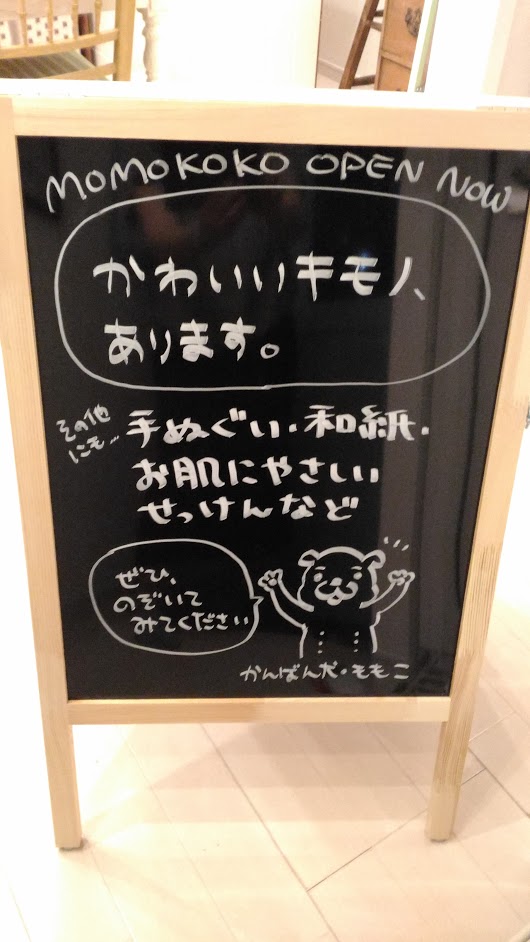 MOMOKOKO OPEN NOW
かわいいキモノ、
あります。
その他
にも…
手ぬぐい・和紙・
お肌にやさしい
せっけんなど
ぜひ、
のぞいて
みてください
かんばん犬・ももこ